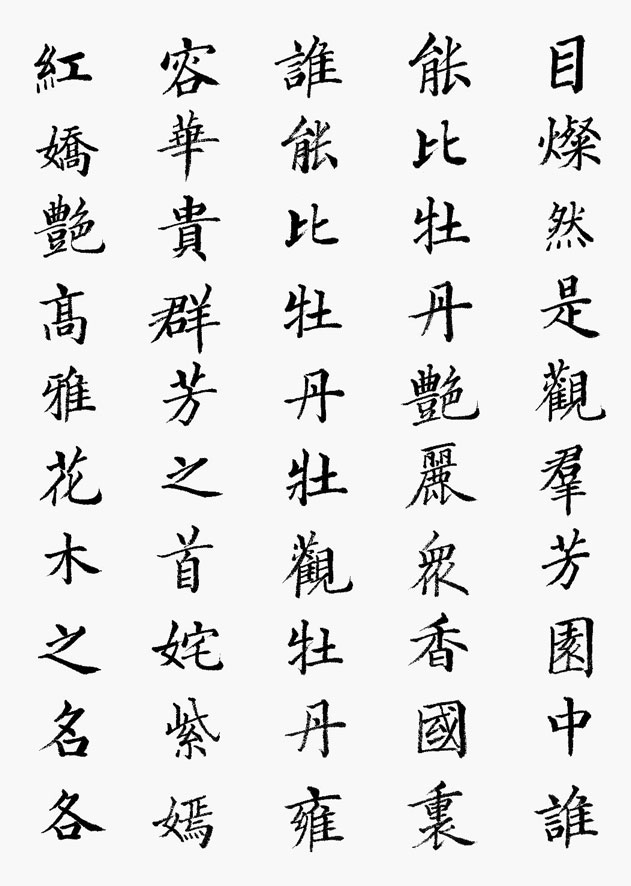 目燦然是觀羣芳園中誰
能比牡丹艷麗眾香國裏
誰能比牡丹壯觀牡丹雍
容華貴群芳之首姹紫嫣
紅嬌艷高雅花木之名各